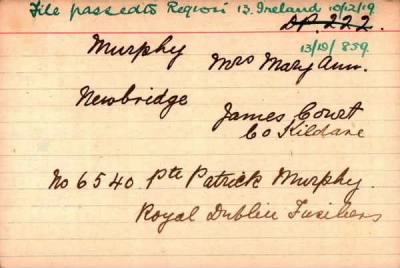 File passed to Region 13. Ireland 10/12/19
DP. 222.
13/D/859
Murphy Mrs Mary Ann.
Newbridge James Court
Co Kildare
No 6540 Pte Patrick Murphy.
Royal Dublin Fusiliers